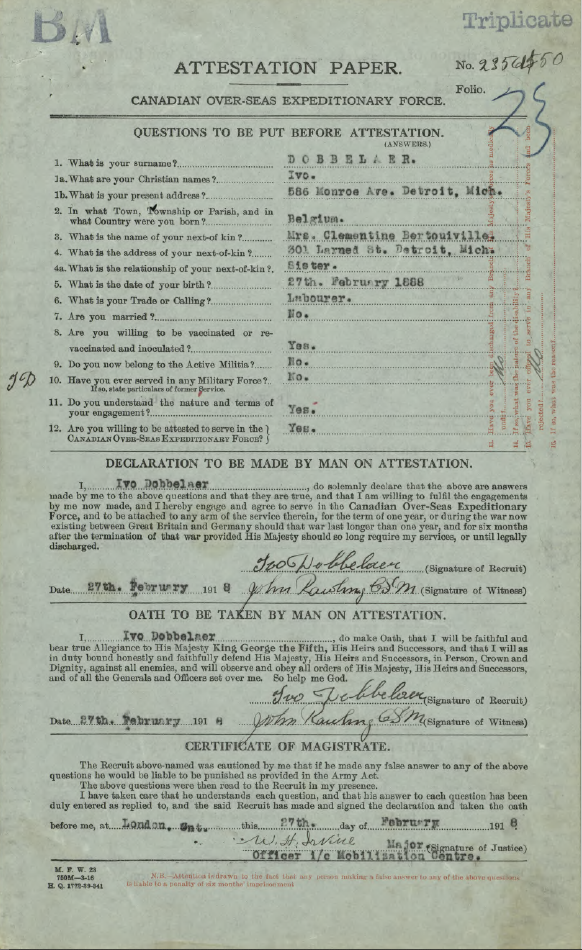 BM
Triplicate
ATTESTATION PAPER.
No.
Folio.
23
CANADIAN OVER-SEAS EXPEDITIONARY FORCE.
QUESTIONS TO BE PUT BEFORE ATTESTATION.
(ANSWERS.)
1. What is your surname? DOBBELAER.
1a. What are your Christian names? Ivo.
1b. What is your present address? 586 Monroe Ave. Detroit, Mich.
2. In what Town, Township or Parish, and in
what Country were you born? Belgium.
3. What is the name of your next-of kin? Mrs. Clementine Bertouiville.
4. What is the address of your next-of-kin? 301 Larned St. Detroit, Mich.
4a. What is the relationship of your next-of-kin? Sister.
5. What is the date of your birth? 27th. February 1888
6. What is your Trade or Calling? Labourer.
7. Are you married? No.
8. Are you willing to be vaccinated or re-
vaccinated and inoculated? Yes.
9. Do you now belong to the Active Militia? No.
10. Have you ever served in any Military Force? No.
If so, state particulars of former Service.
11. Do you understand the nature and terms of
your engagement? Yes.
12. Are you willing to be attested to serve in the
CANADIAN OVER-SEAS EXPEDITIONARY FORCE? Yes.
No
No
DECLARATION TO BE MADE BY MAN ON ATTESTATION.
I, Ivo Dobbelaer, do solemnly declare that the above are answers
made by me to the above questions and that they are true, and that I am willing to fulfil the engagements
by me now made, and I hereby engage and agree to serve in the Canadian Over-Seas Expeditionary
Force, and to be attached to any arm of the service therein, for the term of one year, or during the war now
existing between Great Britain and Germany should that war last longer than one year, and for six months
after the termination of that war provided His Majesty should so long require my services, or until legally
discharged.
Ivo Dobbelaer (Signature of Recruit)
Date 27th. February 1918 John Rawling CSM (Signature of Witness)
OATH TO BE TAKEN BY MAN ON ATTESTATION.
I, Ivo Dobbelaer, do make Oath, that I will be faithful and
bear true Allegiance to His Majesty King George the Fifth, His Heirs and Successors, and that I will as
in duty bound honestly and faithfully defend His Majesty, His Heirs and Successors, in Person, Crown and
Dignity, against all enemies, and will observe and obey all orders of His Majesty, His Heirs and Successors,
and of all the Generals and Officers set over me. So help me God.
Ivo Dobbelaer (Signature of Recruit)
Date 27th. February 1918 John Rawling CSM (Signature of Witness)
CERTIFICATE OF MAGISTRATE.
The Recruit above-named was cautioned by me that if he made any false answer to any of the above
questions he would be liable to be punished as provided in the Army Act.
The above questions were then read to the Recruit in my presence.
I have taken care that he understands each question, and that his answer to each question has been
duly entered as replied to, and the said Recruit has made and signed the declaration and taken the oath
before me, at London, Ont. this 27th. day of February 1918
W. H. Irvine Major (Signature of Justice)
Officer i/c Mobilization Centre.
M. F. W. 23
750M—3-16
H. Q. 1772-39-241
N.B.—Attention is drawn to the fact that any person making a false answer to any of the above questions
is liable to a penalty of six months' imprisonment